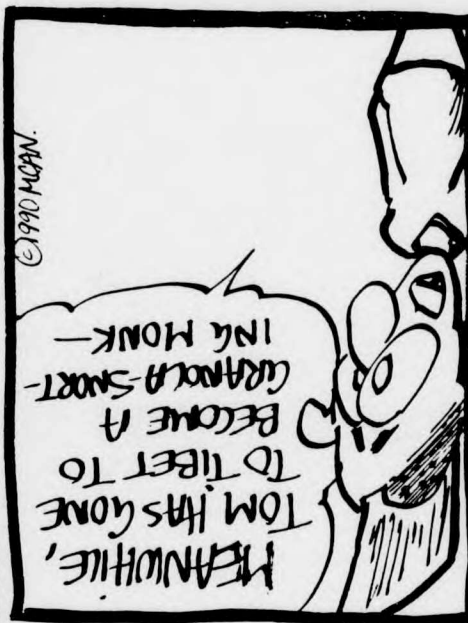 MEANWHILE,
TOM HAS GONE
TO TIBET TO
BECOME A
GRANOLA-SNORT-
ING MONK—
©1990 MCAN.